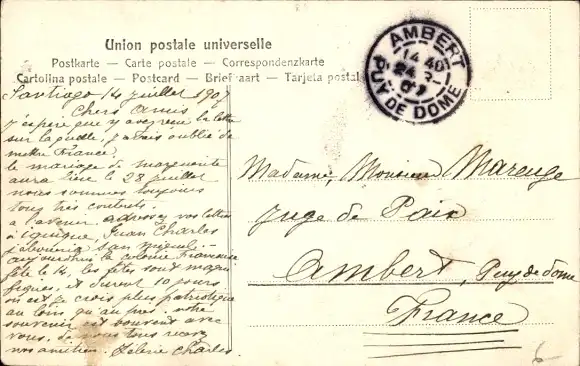 Union postale universelle
Postkarte — Carte postale — Correspondenzkarte
Cartolina postale — Postcard — Briefkaart — Tarjeta postal
AMBERT
14 40
24 8
07
PUY DE DOME
Santiago 14 juillet 190
Chers amis
j'espère que y avez reçu la lettre
sur laquelle j'avais oublié de
mettre France.
le mariage de marguerite
aura lieu le 28 juillet
nous sommes toujours
tous très contents.
a l'avenir adressez vos lettres
à iquique, Juan Charles
San Miguel. —
aujourd'hui la colonie Française
fête le 14, les fêtes sont magni
fiques, et durent 10 jours.
on est je crois plus patriotique
au loin qu'au près. votre
souvenir est souvent avec
vous, de nous tous recevez
nos amitiés. Charles.
Madame, Monsieur Marenge
Juge de Paix
Ambert, Puy de dome
France